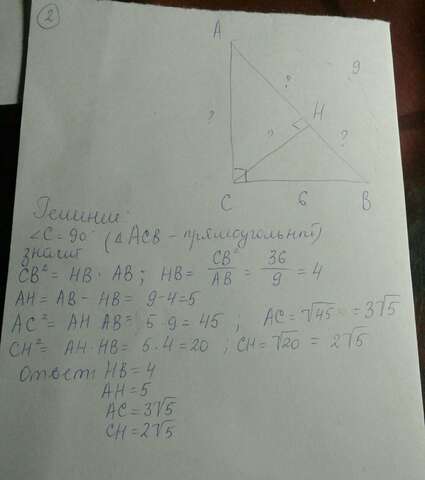 2
A
9
?
H
?
?
?
C
6
B
Решение:
∠C = 90° (△ACB - прямоугольный)
значит
CB² = HB · AB; HB = CB²/AB = 36/9 = 4
AH = AB - HB = 9-4=5
AC² = AH · AB = 5 · 9 = 45 ; AC = √45 = 3√5
CH² = AH · HB = 5 · 4 = 20 ; CH = √20 = 2√5
Ответ: HB = 4
AH = 5
AC = 3√5
CH = 2√5